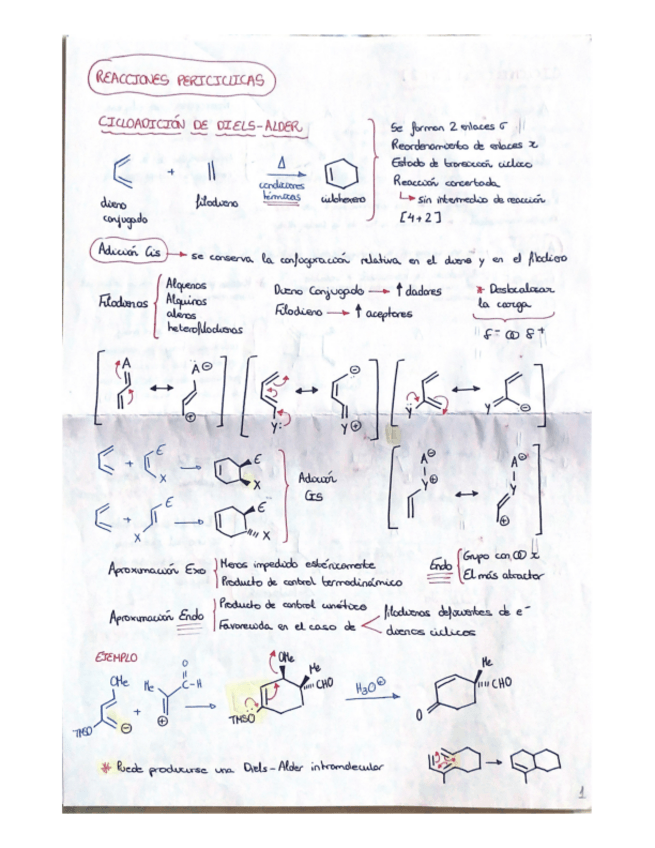 REACCIONES PERICICLICAS
CICLOADICIÓN DE DIELS-ALDER
+
Δ
condiciones
térmicas
dieno
conjugado
filodieno
ciclohexeno
Se forman 2 enlaces σ
Reordenamiento de enlaces π
Estado de transición cíclico
Reacción concertada
↳ sin intermedio de reacción
[4+2]
Adición Cis → se conserva la configuración relativa en el dieno y en el filodieno
Filodienos
Alquenos
Alquinos
alenos
heterofilodienos
Dieno Conjugado → ↑ dadores
Filodieno → ↑ aceptores
* Deslocalizar
la carga
δ- ∞ δ+
A ↔ A⊖ ⊕
Y: ↔ ⊖ Y⊕
Y ↔ Y ⊖
+ E X → E X
+ E X → E X
Adición
Cis
A⊖ Y⊕ ↔ A⊖ Y ⊕
Aproximación Exo
Menos impedido estéricamente
Producto de control termodinámico
Endo
Grupo con ∞ π
El más atractor
Aproximación Endo
Producto de control cinético
Favorecida en el caso de
filodienos deficientes de e-
dienos cíclicos
EJEMPLO
OMe
TMSO ⊖
+
Me
O
C-H
⊕
OMe
Me
CHO
TMSO
H3O⊕
Me
CHO
O
* Puede producirse una Diels-Alder intramolecular
1